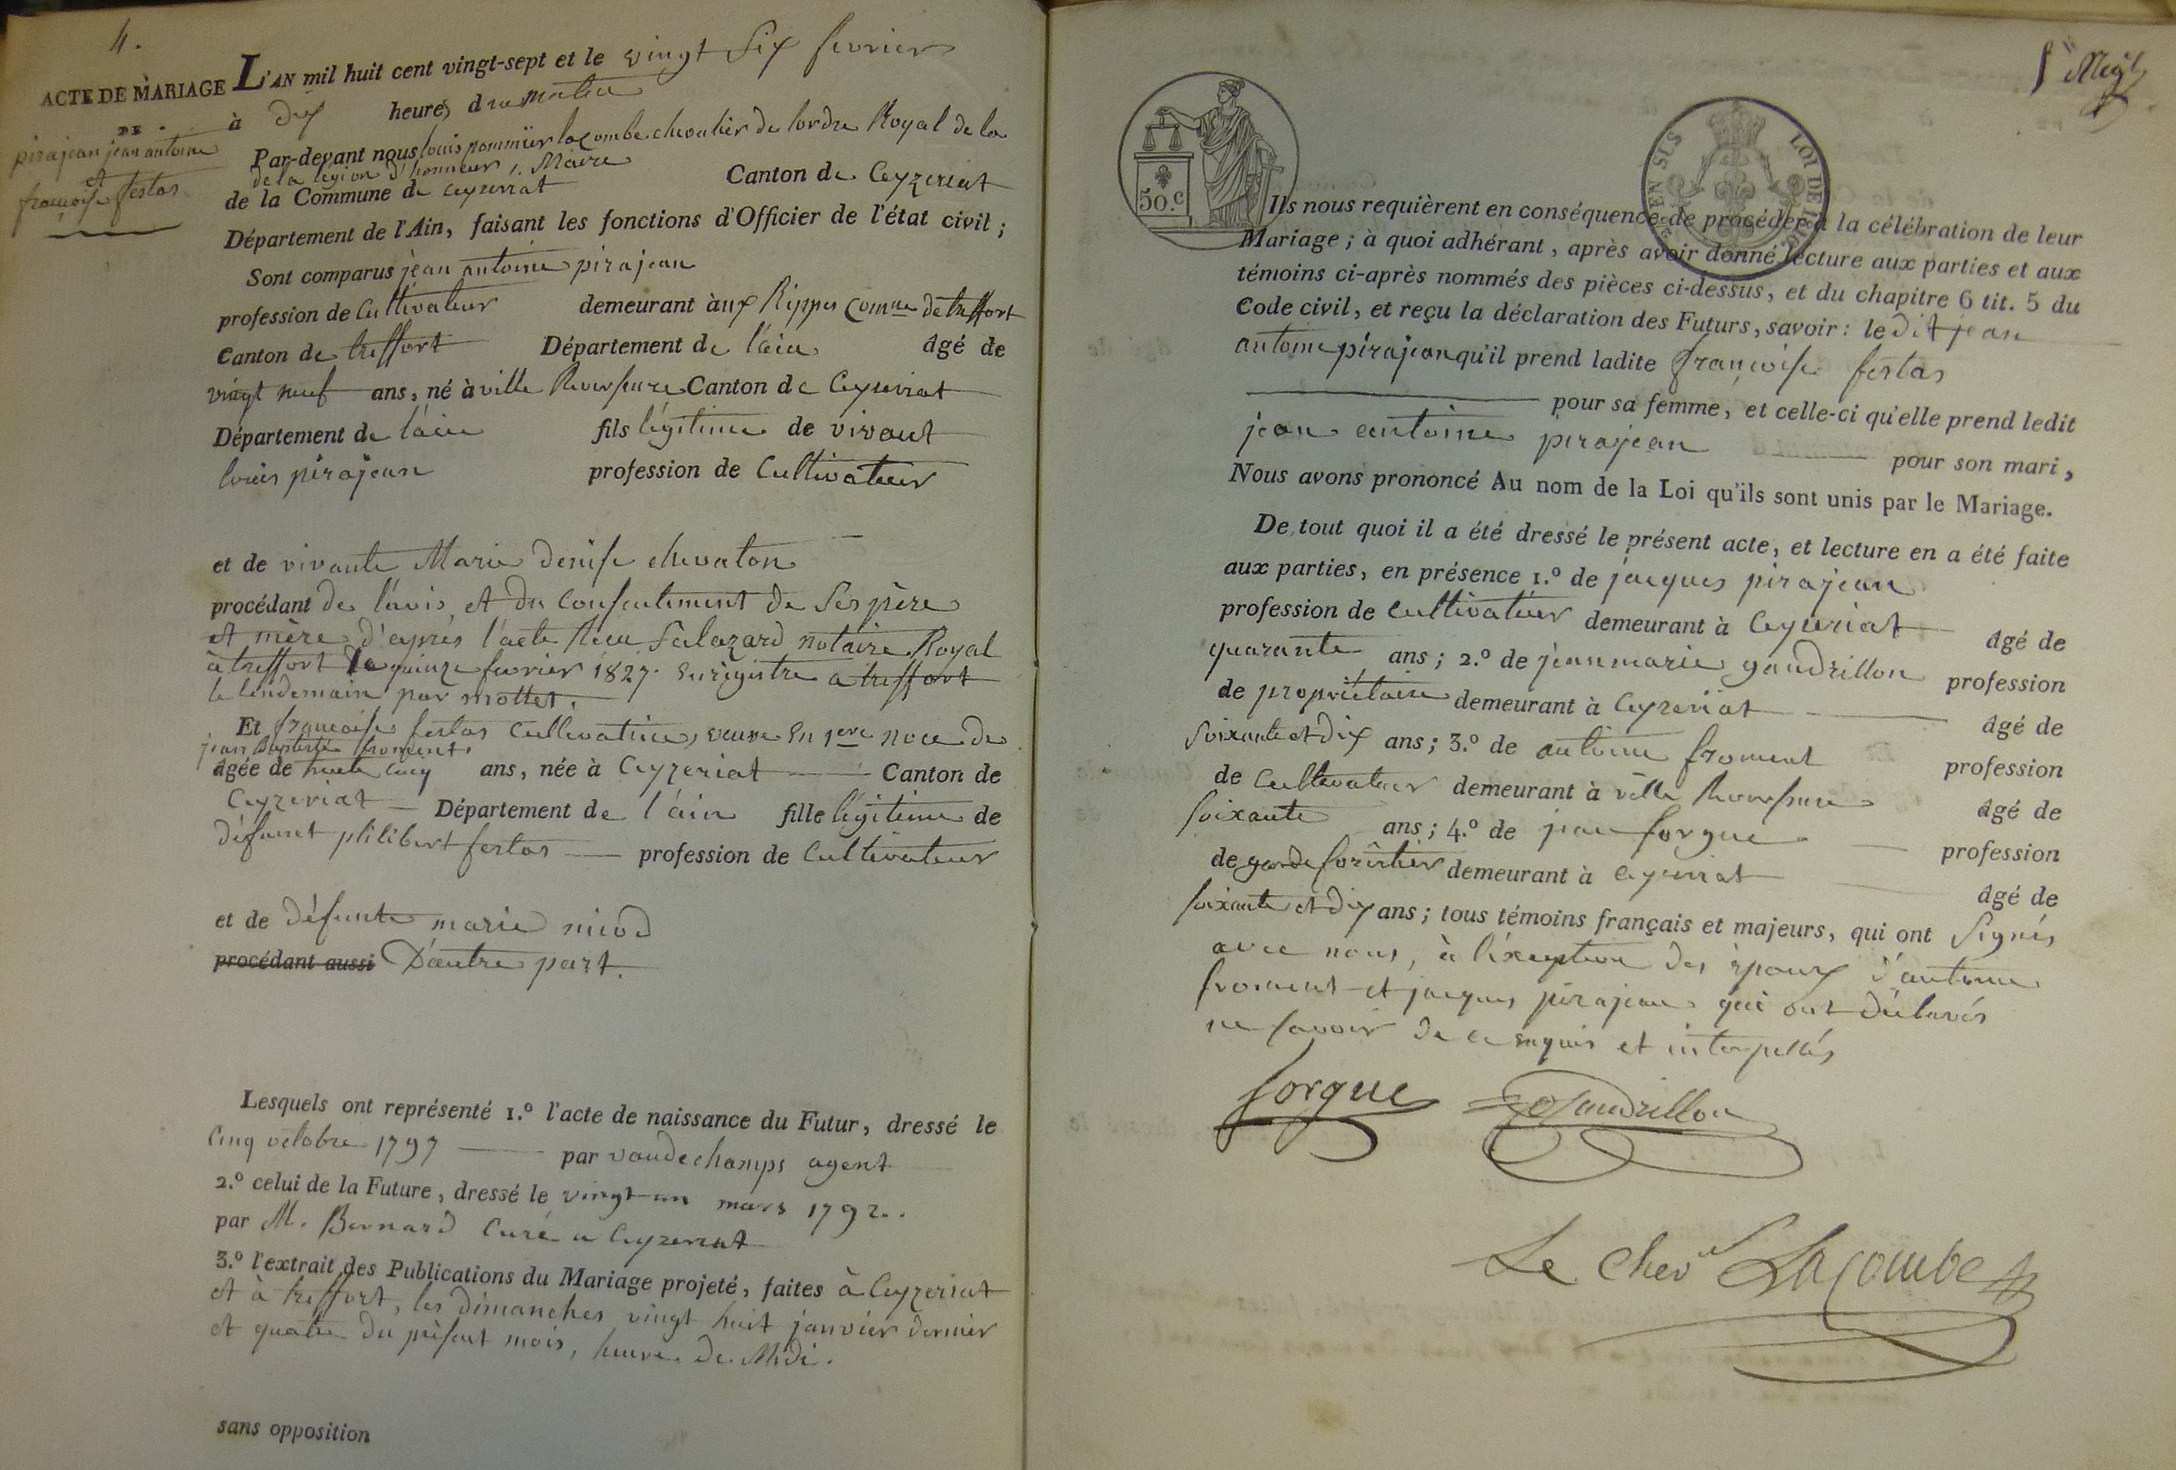 4.
ACTE DE MARIAGE
DE
pirajean jean antoine
et
françoise festas
L'AN mil huit cent vingt-sept et le vingt six fevrier
à dix heures du matin
Par-devant nous louis pommier lacombe chevalier de lordre Royal de la
de la legion d'honneur, Maire
de la Commune de Ceyzeriat Canton de Ceyzeriat
Département de l'Ain, faisant les fonctions d'Officier de l'état civil ;
Sont comparus jean antoine pirajean
profession de Cultivateur demeurant àux Rippes Comne de treffort
Canton de treffort Département de l'ain âgé de
vingt neuf ans, né à ville Reversure Canton de Ceyzeriat
Département de l'ain fils légitime de vivant
louis pirajean profession de Cultivateur
et de vivante Marie denise chevaton
procédant de l'avis et du Consentement de Ses père
et mère d'après l'acte Reçu Salazard notaire Royal
à treffort le quinze fevrier 1827. enregistre a treffort
le lendemain par mottet.
Et françoise festas Cultivatrice, veuve en 1ere noce de
jean Baptiste froment.
âgée de trente cinq ans, née à Ceyzeriat Canton de
Ceyzeriat Département de l'ain fille légitime de
défunt philibert festas profession de Cultivateur
et de défunte marie niod
procédant aussi D'autre part.
Lesquels ont représenté 1.º l'acte de naissance du Futur, dressé le
Cinq octobre 1797 par vaudechamps agent
2.º celui de la Future, dressé le vingt un mars 1792.
par M. Bernard Curé a Ceyzeriat
3.º l'extrait des Publications du Mariage projeté, faites à Ceyzeriat
et à treffort, les dimanches vingt huit janvier dernier
et quatre du présent mois, heure de Midi.
sans opposition
50.c
LOI DE
Ils nous requièrent en conséquence de procéder à la célébration de leur
Mariage ; à quoi adhérant, après avoir donné lecture aux parties et aux
témoins ci-après nommés des pièces ci-dessus, et du chapitre 6 tit. 5 du
Code civil, et reçu la déclaration des Futurs, savoir : le dit jean
antoine pirajean qu'il prend ladite françoise festas
pour sa femme, et celle-ci qu'elle prend ledit
jean antoine pirajean pour son mari,
Nous avons prononcé Au nom de la Loi qu'ils sont unis par le Mariage.
De tout quoi il a été dressé le présent acte, et lecture en a été faite
aux parties, en présence 1.º de jacques pirajean
profession de Cultivateur demeurant à Ceyzeriat âgé de
quarante ans ; 2.º de jean marie gaudrillon profession
de propriétaire demeurant à Ceyzeriat âgé de
Soixante et dix ans ; 3.º de antoine froment profession
de Cultivateur demeurant à ville Reversure âgé de
Soixante ans ; 4.º de jean forgue profession
de garde forêstier demeurant à Ceyzeriat âgé de
soixante et dix ans ; tous témoins français et majeurs, qui ont Signés
avec nous, à l'éxception des époux d'antoine
froment et jacques pirajean qui ont déclarés
ne savoir de ce enquis et interpellés
forgue Gaudrillon
Le chevr Lacombe